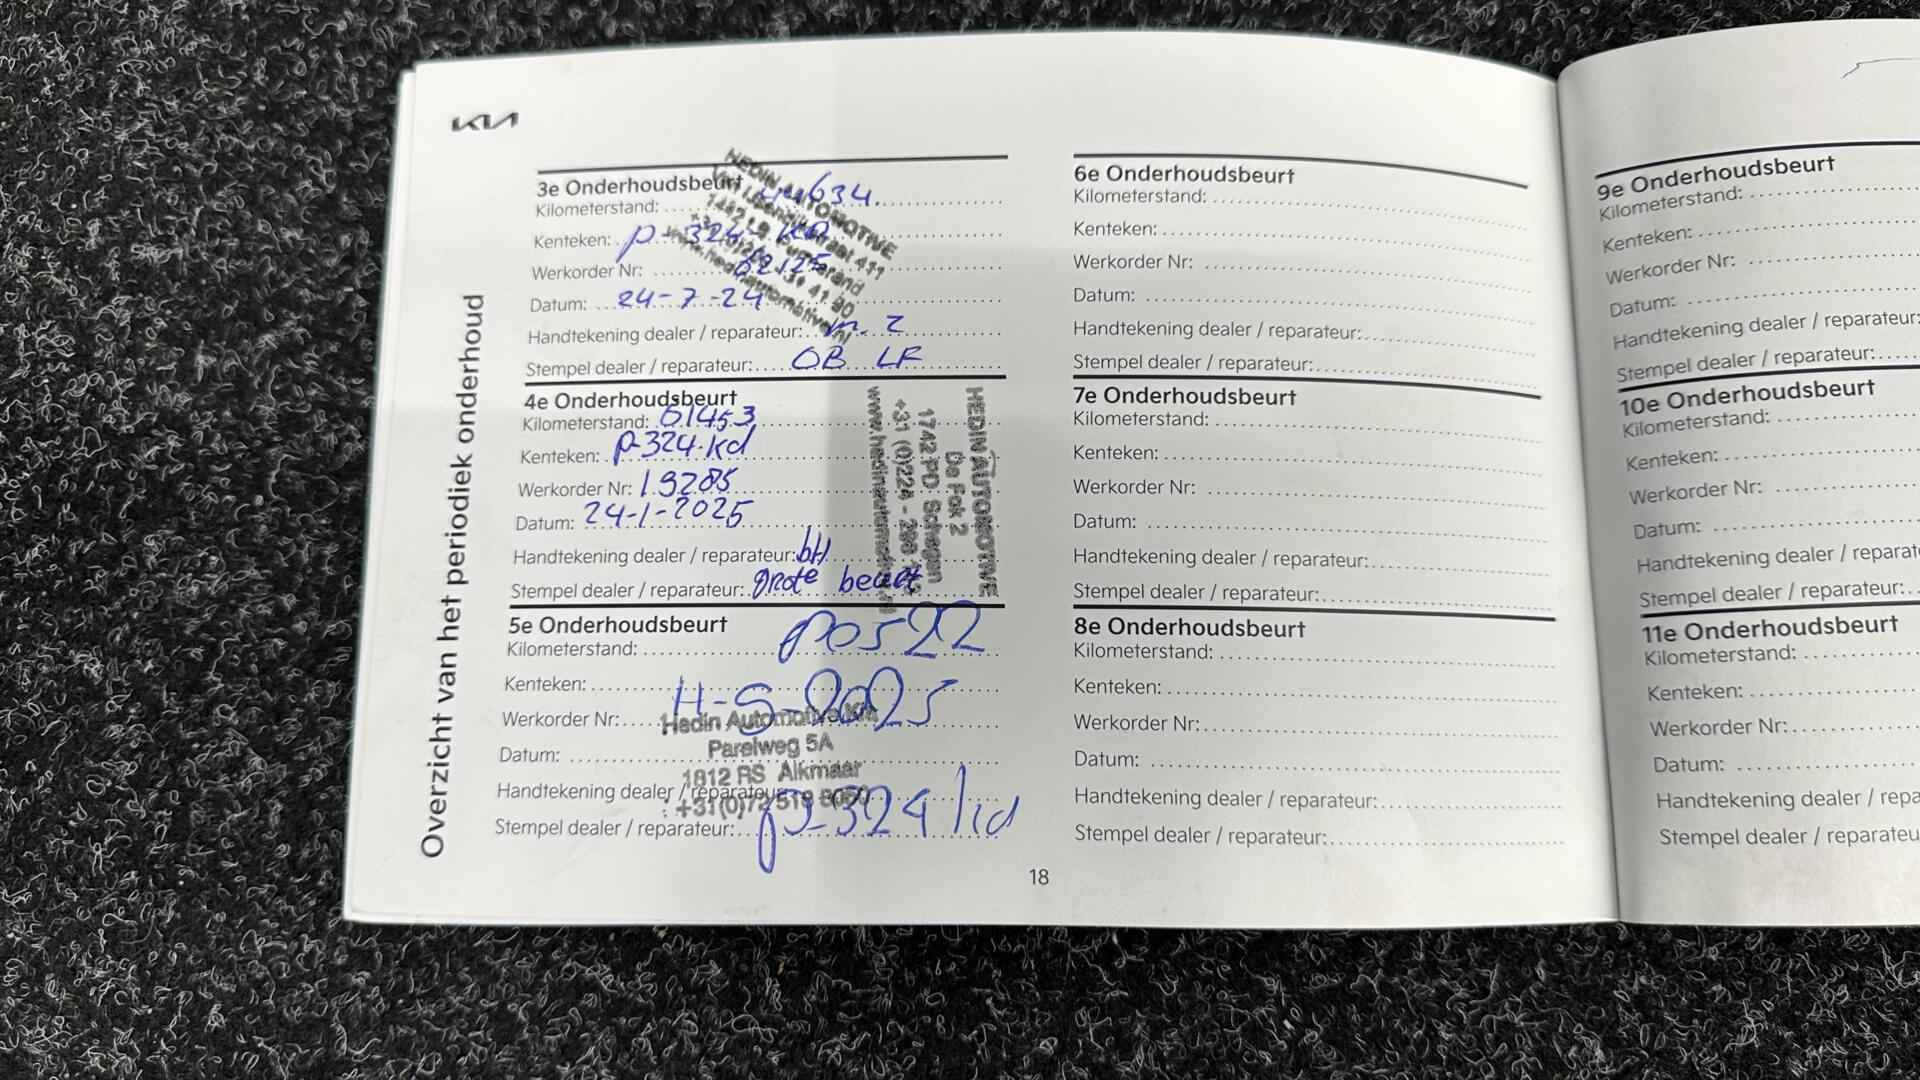 KIA
Overzicht van het periodiek onderhoud
3e Onderhoudsbeurt
Kilometerstand: 634
Kenteken: P-324-KD
Werkorder Nr: 62125
Datum: 24-7-24
Handtekening dealer / reparateur: m. z
Stempel dealer / reparateur: OB LF
HEDIN AUTOMOTIVE
411
4e Onderhoudsbeurt
Kilometerstand: 61453
Kenteken: P-324-kd
Werkorder Nr: 19285
Datum: 24-1-2025
Handtekening dealer / reparateur: bH
Stempel dealer / reparateur: grote beurt
HEDIN AUTOMOTIVE
De Fok 2
1742 PD Schagen
+31 (0)224 -
5e Onderhoudsbeurt
Kilometerstand:
Kenteken:
Werkorder Nr:
Datum:
Handtekening dealer / reparateur:
Stempel dealer / reparateur: p-324 kd
Hedin Automotive
Parelweg 5A
1812 RS Alkmaar
6e Onderhoudsbeurt
Kilometerstand:
Kenteken:
Werkorder Nr:
Datum:
Handtekening dealer / reparateur:
Stempel dealer / reparateur:
7e Onderhoudsbeurt
Kilometerstand:
Kenteken:
Werkorder Nr:
Datum:
Handtekening dealer / reparateur:
Stempel dealer / reparateur:
8e Onderhoudsbeurt
Kilometerstand:
Kenteken:
Werkorder Nr:
Datum:
Handtekening dealer / reparateur:
Stempel dealer / reparateur:
18
9e Onderhoudsbeurt
Kilometerstand:
Kenteken:
Werkorder Nr:
Datum:
Handtekening dealer / reparateur:
Stempel dealer / reparateur:
10e Onderhoudsbeurt
Kilometerstand:
Kenteken:
Werkorder Nr:
Datum:
Handtekening dealer / reparat
Stempel dealer / reparateur:
11e Onderhoudsbeurt
Kilometerstand:
Kenteken:
Werkorder Nr:
Datum:
Handtekening dealer / repa
Stempel dealer / reparateu